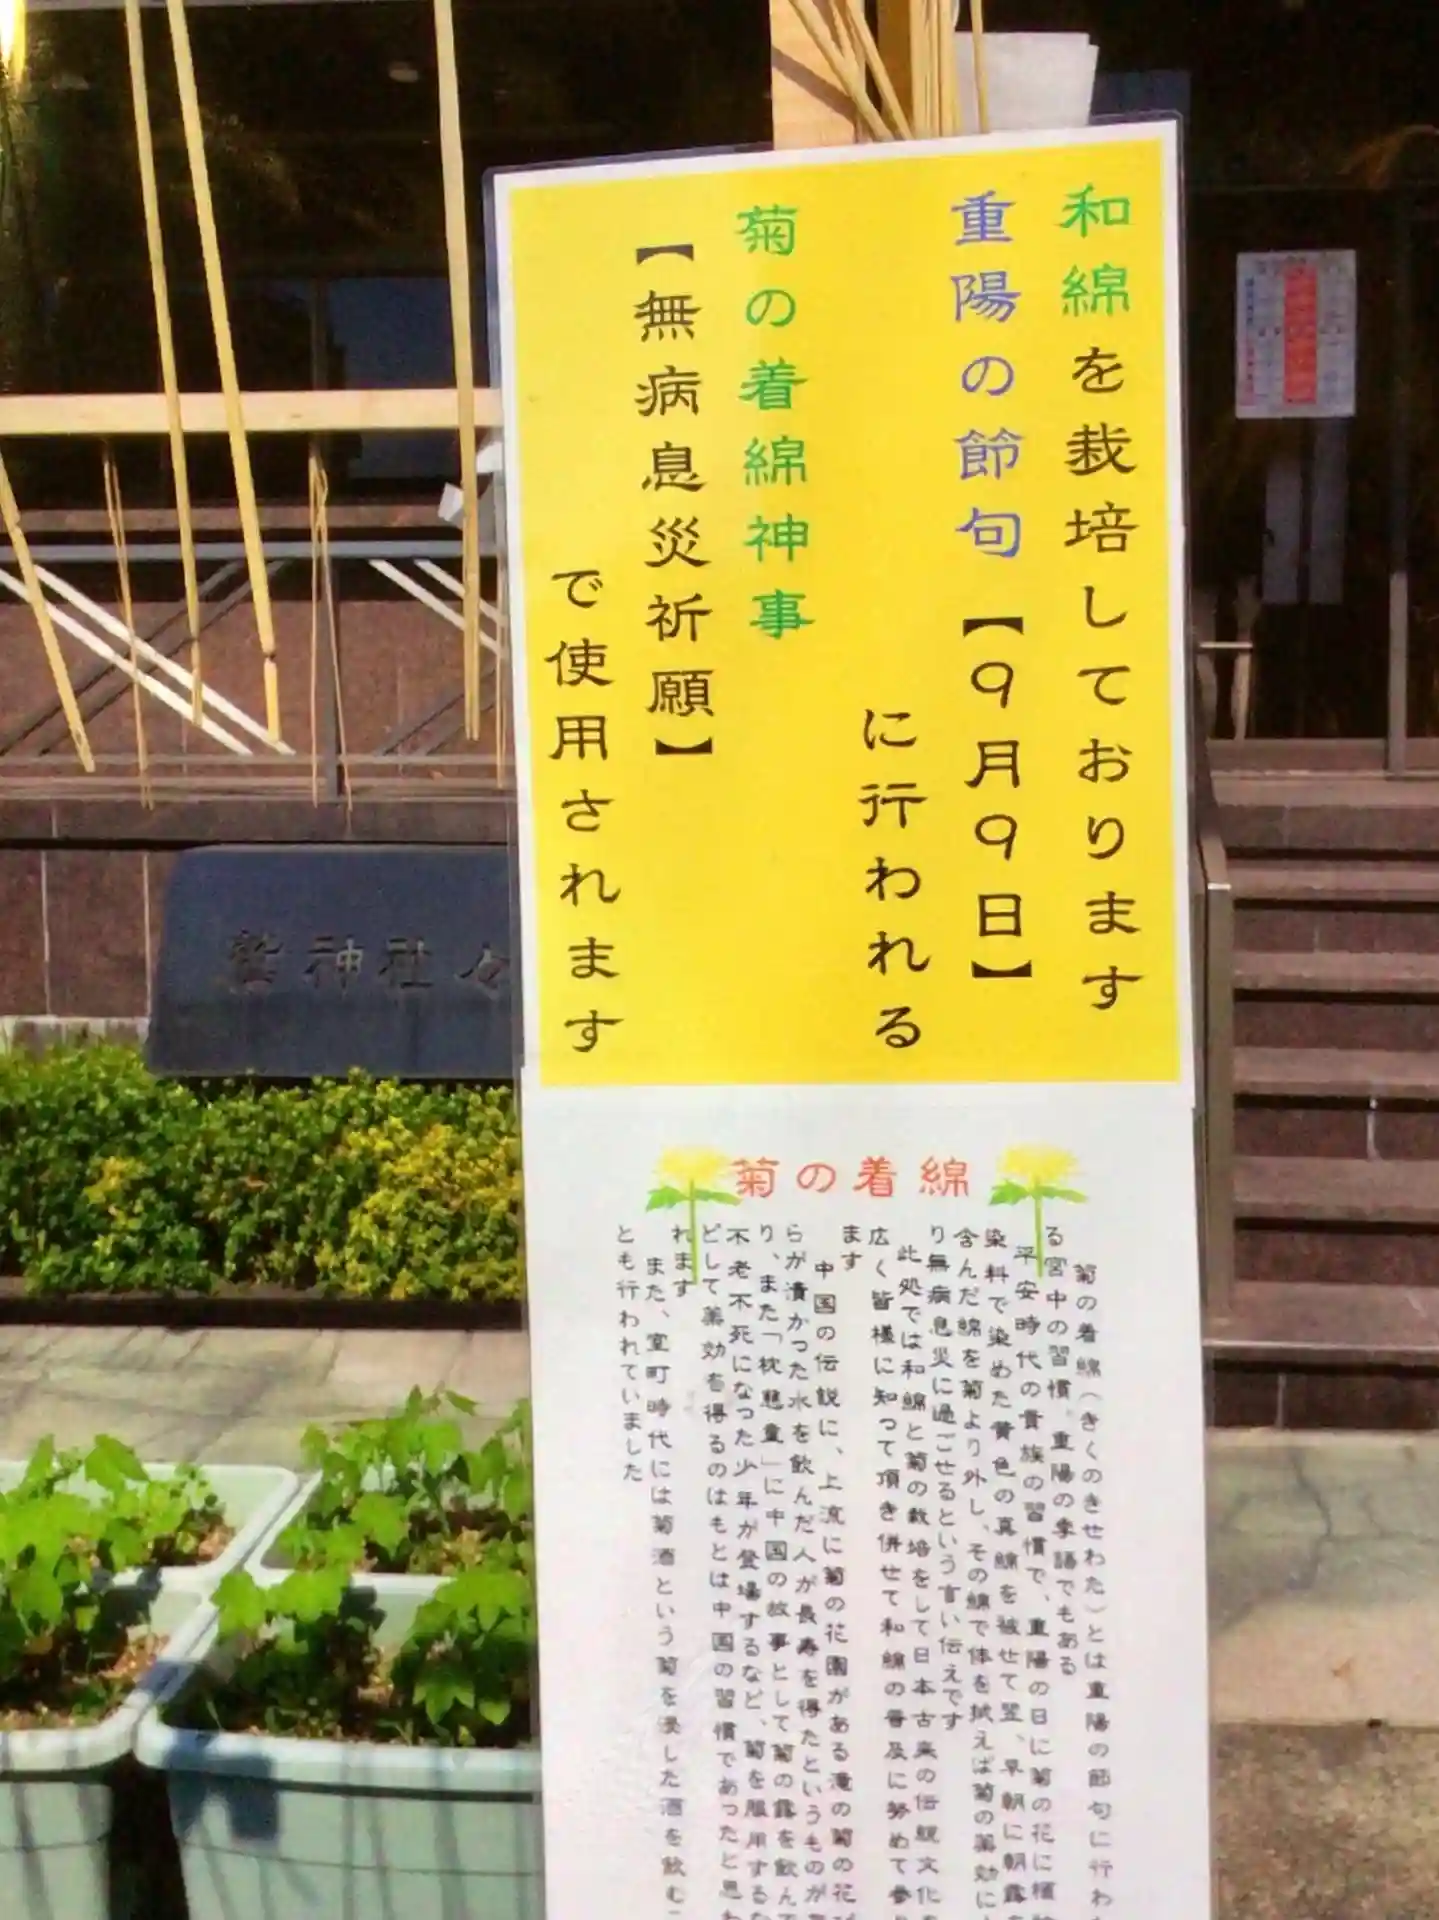 和綿を栽培しております
重陽の節句【9月9日】
に行われる
菊の着綿神事
【無病息災祈願】
で使用されます
鷲神社々
菊の着綿
菊の着綿(きくのきせわた)とは重陽の節句に行わ
る宮中の習慣。重陽の季語でもある
平安時代の貴族の習慣で、重陽の日に菊の花に植
染料で染めた黄色の真綿を被せて翌、早朝に朝露を
含んだ綿を菊より外し、その綿で体を拭えば菊の薬効に
り無病息災に過ごせるという言い伝えです
此処では和綿と菊の栽培をして日本古来の伝統文化を
広く皆様に知って頂き併せて和綿の普及に努めて参り
ます
中国の伝説に、上流に菊の花園がある滝の菊の花び
らが漬かった水を飲んだ人が長寿を得たというものがあ
り、また「枕慈童」に中国の故事として菊の露を飲んで
不老不死になった少年が登場するなど、菊を服用するな
どして薬効を得るのはもとは中国の習慣であったと思わ
れます
また、室町時代には菊酒という菊を浸した酒を飲むこ
とも行われていました